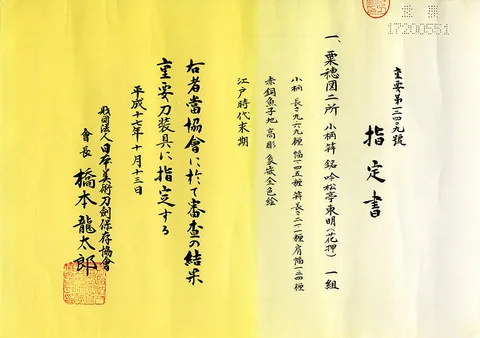 重要
17200551
重要第一四〇九號
指定書
一、粟穂図二所 小柄笄 銘 吟松亭東明(花押) 一組
小柄 長さ九・六九糎 幅一・四五糎 笄 長さ二一・一糎 肩幅一・三四糎
赤銅魚子地 高彫 象嵌金色絵
江戸時代末期
右者當協會に於て審査の結果
重要刀装具に指定する
平成十七年十月十三日
財団法人日本美術刀劍保存協會
會長 橋本龍太郎